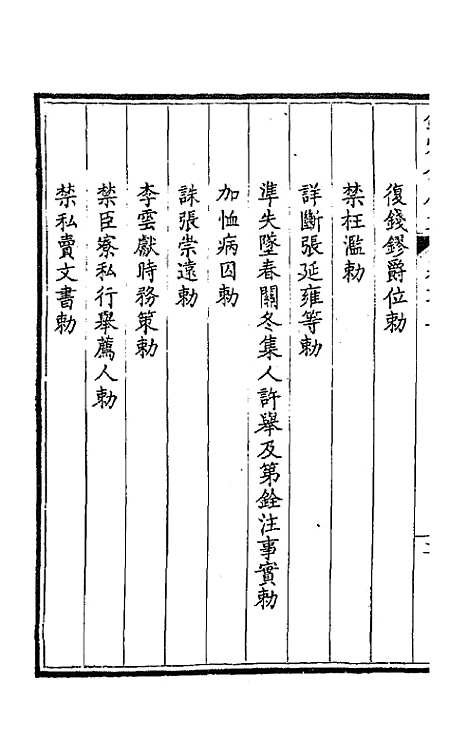 復錢鏐爵位勅
禁枉濫勅
詳斷張延雍等勅
準失墜春關冬集人許舉及第銓注事實勅
加恤病囚勅
誅張崇遠勅
李雲獻時務策勅
禁臣寮私行舉薦人勅
禁私賣文書勅